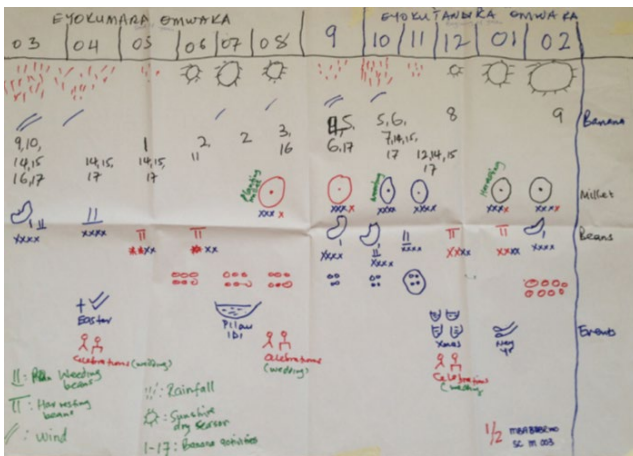 EYOKUMARA OMWAKA
EYOKUTANDIKA OMWAKA
03 04 05 06 07 08 9 10 11 12 01 02
Banana
9,10,
14,15
16,17
14,15,
17
1
14,15,
17
2,
11
2
3,
16
5,
6,17
5,6,
7,14,15,
17
12,14,15,
17
8
9
Millet
Planting
xxx x
xxx x
weeding
xxx
xxx
Harvesting
xxx x
xxx
Beans
xxxx
xxxx
xx
xx
xxxx
xxxx
xxxx
xxxx
xxxx
xxxx
Events
Easter
IDI
Xmas
New
yr
Celebrations (wedding)
Celebrations
(wedding)
Celebrations
(wedding
: Weeding
beans
: Harvesting
beans
: Wind
: Rainfall
: Sunshine
dry season
1-17: Banana activities
1/2
SC M 003